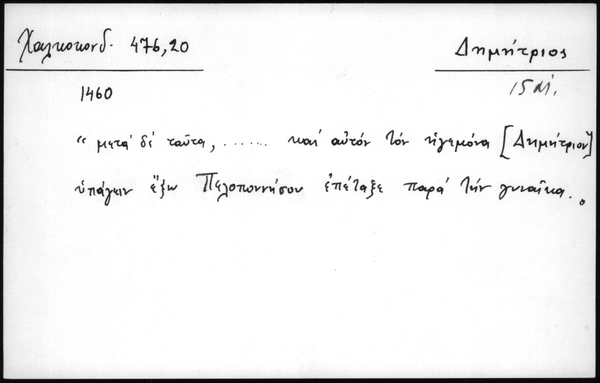 Χαλκοκονδ. 476,20
Δημήτριος
1460
15 αἰ.
" μετά δέ ταῦτα, ...... καί αὐτόν τόν ἡγεμόνα [Δημήτριον]
ὑπάγειν ἔξω Πελοποννήσου ἐπέταξε παρά τήν γυναῖκα.